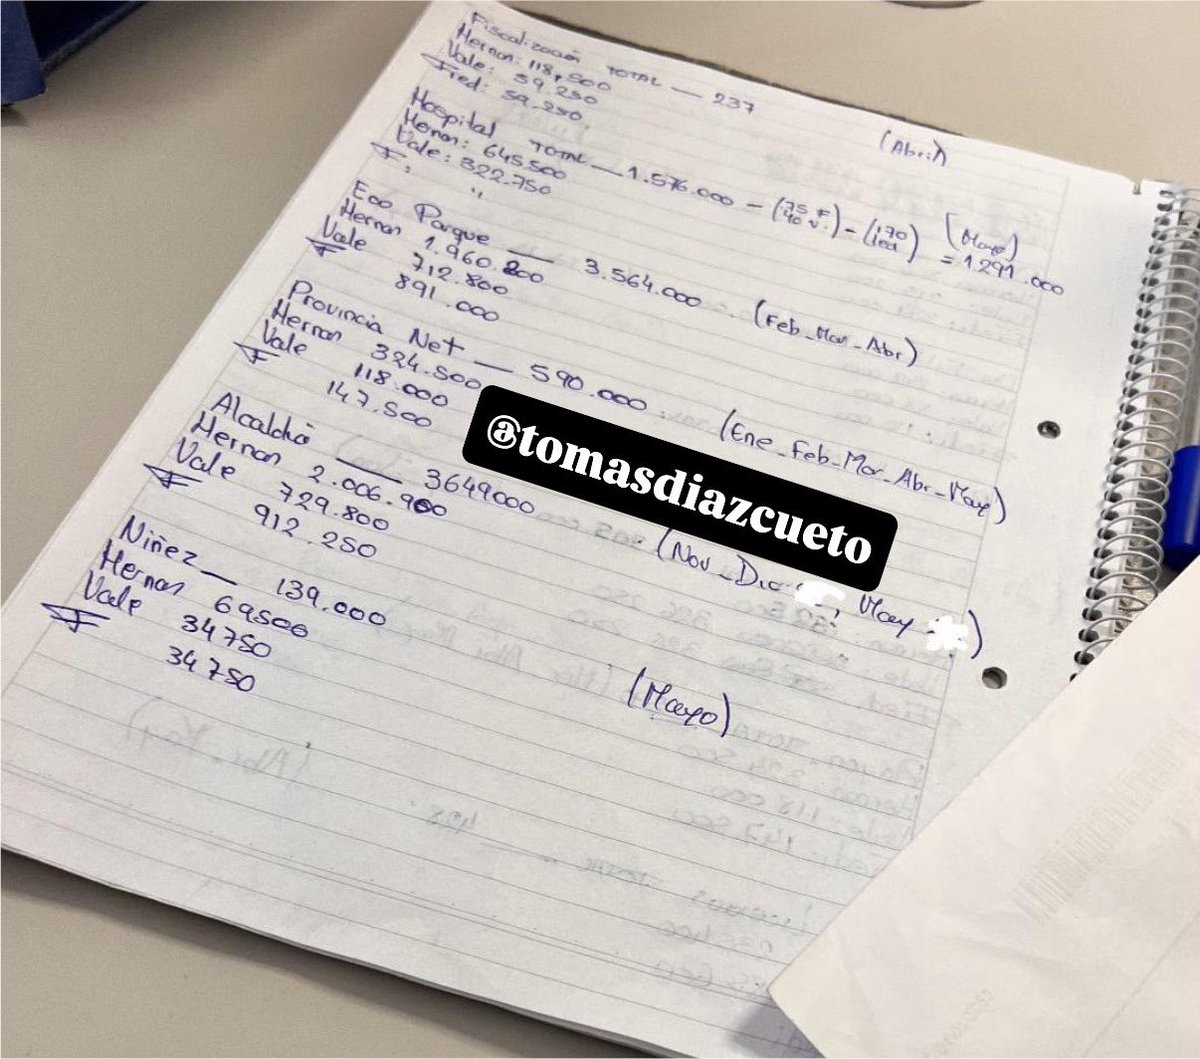 Fiscalización TOTAL — 237
Hernan: 118,500
Vale: 59.250
Fred: 59.250
(Abril)
Hospital TOTAL — 1.576.000 - (75 F 40 V.) - (170 led) = 1.291.000
Hernan: 645.500
Vale: 322.750
F: "
(Mayo)
Eco Parque — 3.564.000
Hernan 1.960.200
Vale 712.800
F 891.000
(Feb-Mar-Abr)
Provincia Net — 590.000
Hernan 324.500
Vale 118.000
F 147.500
(Ene-Feb-Mar-Abr-May)
@tomasdiazcueto
Alcaldía — 3649000
Hernan 2.006.900
Vale 729.800
F 912.250
(Nov-Dic May)
Niñez — 139.000
Hernan 69500
Vale 34750
F 34.750
(Mayo)